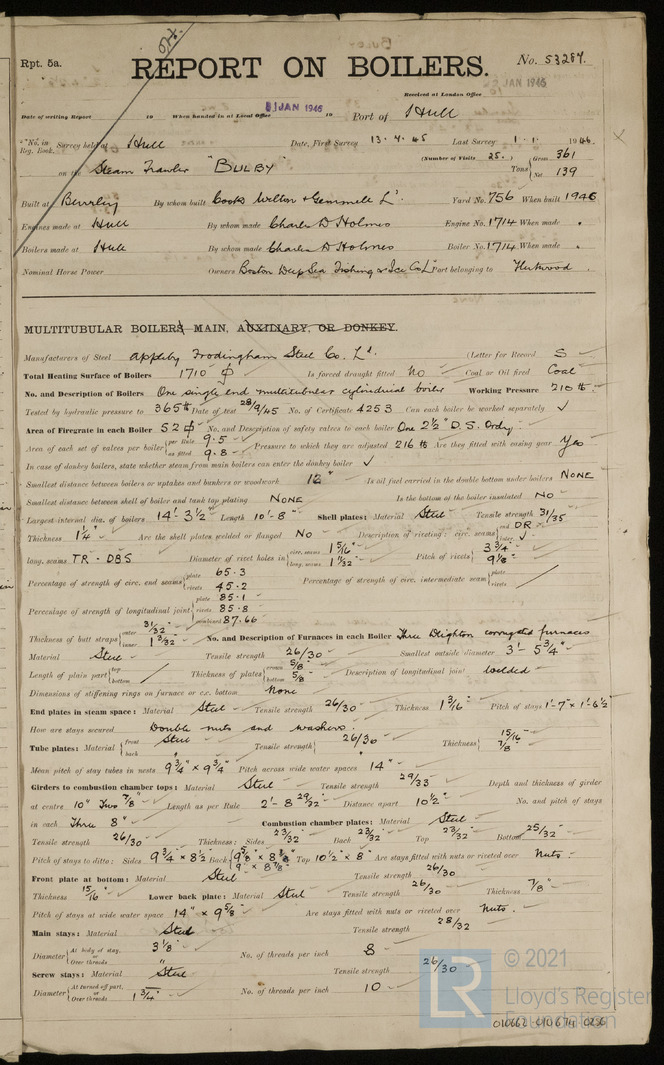 Rpt. 5a.
REPORT ON BOILERS.
No. 53287.
JAN 1946
Received at London Office
Date of writing Report 19 When handed in at Local Office JAN 1946 19 Port of Hull
No. in Reg. Book. Survey held at Hull Date, First Survey 13.4.45 Last Survey 1.1.1946.
(Number of Visits 25.)
on the Steam Trawler "BULBY" Tons { Gross 361 Net 139
Built at Beverley By whom built Cook Welton & Gemmell Ld. Yard No. 756 When built 1946
Engines made at Hull By whom made Charles D Holmes Engine No. 1714 When made
Boilers made at Hull By whom made Charles D Holmes Boiler No. 1714 When made
Nominal Horse Power Owners Boston Deep Sea Fishing & Ice Co Ld Port belonging to Fleetwood
MULTITUBULAR BOILERS MAIN, AUXILIARY, OR DONKEY.
Manufacturers of Steel Appleby Frodingham Steel Co. Ld. (Letter for Record S
Total Heating Surface of Boilers 1710 Is forced draught fitted NO Coal or Oil fired Coal
No. and Description of Boilers One single end multitubular cylindrical boiler Working Pressure 210 lb.
Tested by hydraulic pressure to 365 lb Date of test 28/9/45 No. of Certificate 4253 Can each boiler be worked separately ✓
Area of Firegrate in each Boiler 52 No. and Description of safety valves to each boiler One 2½" D.S. Ordy.
Area of each set of valves per boiler { per Rule 9.5 as fitted 9.8 Pressure to which they are adjusted 216 lb Are they fitted with easing gear Yes
In case of donkey boilers, state whether steam from main boilers can enter the donkey boiler ✓
Smallest distance between boilers or uptakes and bunkers or woodwork 12" Is oil fuel carried in the double bottom under boilers NONE
Smallest distance between shell of boiler and tank top plating NONE Is the bottom of the boiler insulated NO
Largest internal dia. of boilers 14'-3½" Length 10'-8" Shell plates: Material Steel Tensile strength 31/35
Thickness 1¼" Are the shell plates welded or flanged NO Description of riveting: circ. seams { end DR inter. ✓
long. seams TR. DBS Diameter of rivet holes in { circ. seams 1 5/16" long. seams 1 11/32" Pitch of rivets { 3¾" 9⅛"
Percentage of strength of circ. end seams { plate 65.3 rivets 45.2 Percentage of strength of circ. intermediate seam { plate rivets
Percentage of strength of longitudinal joint { plate 85.1 rivets 85.8 combined 87.66
Thickness of butt straps { outer 31/32" inner 1 3/32" No. and Description of Furnaces in each Boiler Three Deighton corrugated furnaces
Material Steel Tensile strength 26/30 Smallest outside diameter 3'-5¾"
Length of plain part { top bottom Thickness of plates { crown 5/8" bottom 5/8" Description of longitudinal joint welded
Dimensions of stiffening rings on furnace or c.c. bottom None
End plates in steam space: Material Steel Tensile strength 26/30 Thickness 1 3/16" Pitch of stays 1'-7" x 1'-6½"
How are stays secured Double nuts and washers.
Tube plates: Material { front Steel back " Tensile strength { 26/30 Thickness { 15/16" 7/8"
Mean pitch of stay tubes in nests 9¾" x 9¾" Pitch across wide water spaces 14"
Girders to combustion chamber tops: Material Steel Tensile strength 29/33 Depth and thickness of girder
at centre 10" Two 7/8" Length as per Rule 2'-8 29/32" Distance apart 10½" No. and pitch of stays
in each Three 8" Combustion chamber plates: Material Steel
Tensile strength 26/30 Thickness: Sides 23/32" Back 23/32" Top 23/32" Bottom 25/32"
Pitch of stays to ditto: Sides 9¾ x 8½ Back Top 10½ x 8" Are stays fitted with nuts or riveted over Nuts.
Front plate at bottom: Material Steel Tensile strength 26/30
Thickness 15/16" Lower back plate: Material Steel Tensile strength 26/30 Thickness 7/8"
Pitch of stays at wide water space 14" x 9⅝" Are stays fitted with nuts or riveted over Nuts.
Main stays: Material Steel Tensile strength 28/32
Diameter { At body of stay, 3⅛" or Over threads " No. of threads per inch 8
Screw stays: Material Steel Tensile strength 26/30
Diameter { At turned off part, or Over threads 1¾" No. of threads per inch 10
LR © 2021 Lloyd's Register Foundation
010662 010674 0256